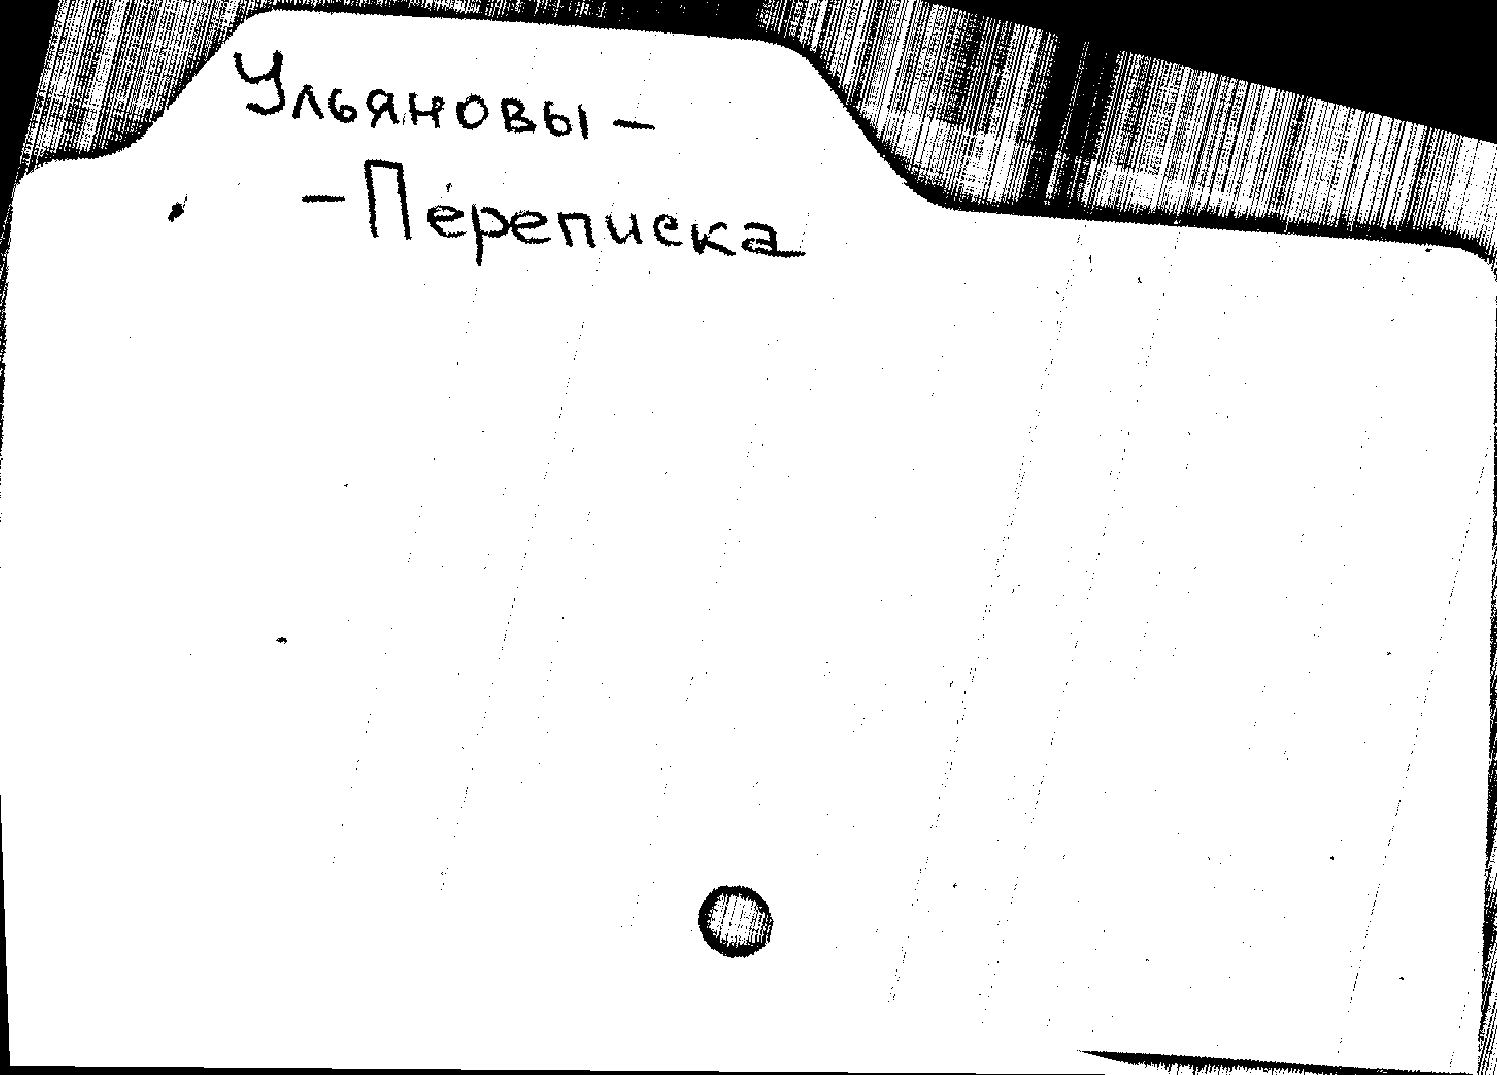 Ульяновы –
– Переписка